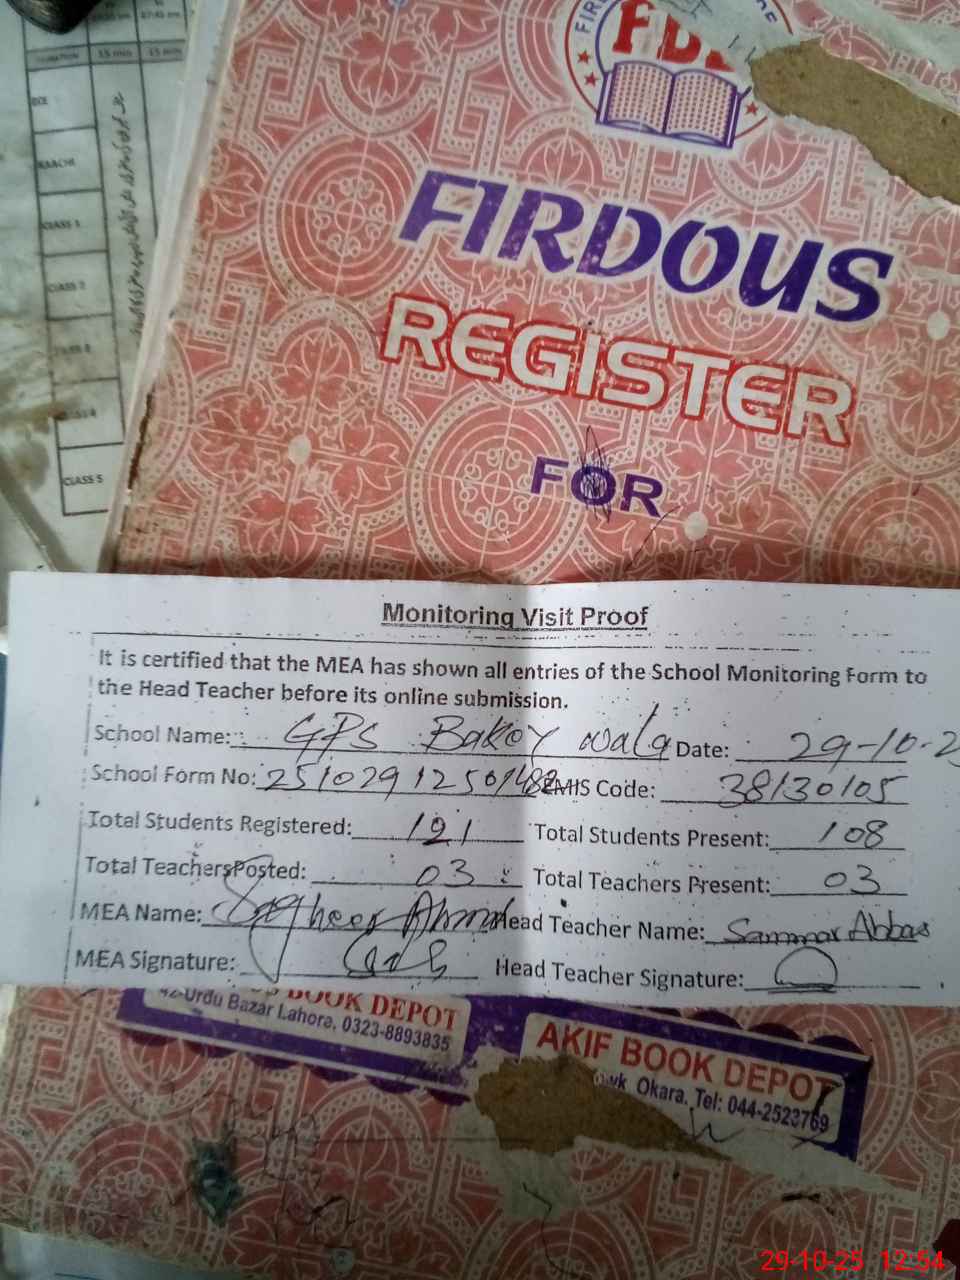 15 min 15 min
ECE
KAACHI
CLASS 1
CLASS 2
CLASS 5
FIRDOUS
REGISTER
FOR
Monitoring Visit Proof
It is certified that the MEA has shown all entries of the School Monitoring Form to
the Head Teacher before its online submission.
School Name: GPS Bakoy wala Date: 29-10-25
School Form No: 25102912501482 EMIS Code: 38130105
Total Students Registered: 121 Total Students Present: 108
Total Teachers Posted: 03 Total Teachers Present: 03
MEA Name: Sagheer Ahmad Head Teacher Name: Sammar Abbas
MEA Signature: Head Teacher Signature:
BOOK DEPOT
42-Urdu Bazar Lahore. 0323-8893835
AKIF BOOK DEPOT
Okara. Tel: 044-2523769
29-10-25 12:54